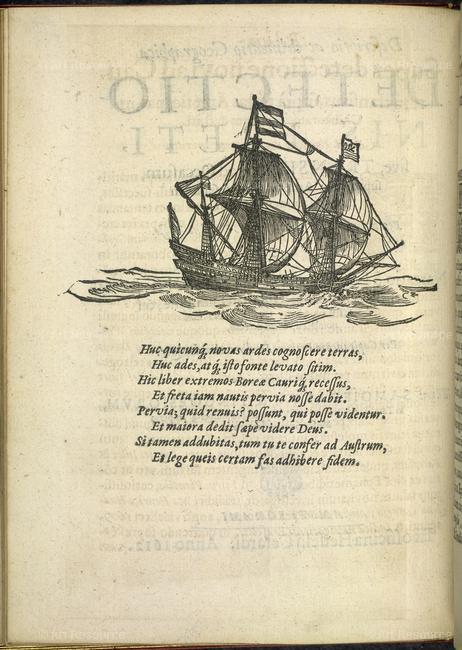 Huc quicunq́, novas ardes cognoſcere terras,
Huc ades, atq́, iſto fonte levato ſitim.
Hic liber extremos Boreæ Cauriq́, receſſus,
Et freta iam nautis pervia noſſe dabit.
Pervia; quid renuis? poſſunt, qui poſſe videntur.
Et maiora dedit ſæpe videre Deus.
Si tamen addubitas, tum tu te confer ad Auſtrum,
Et lege queis certam fas adhibere fidem.